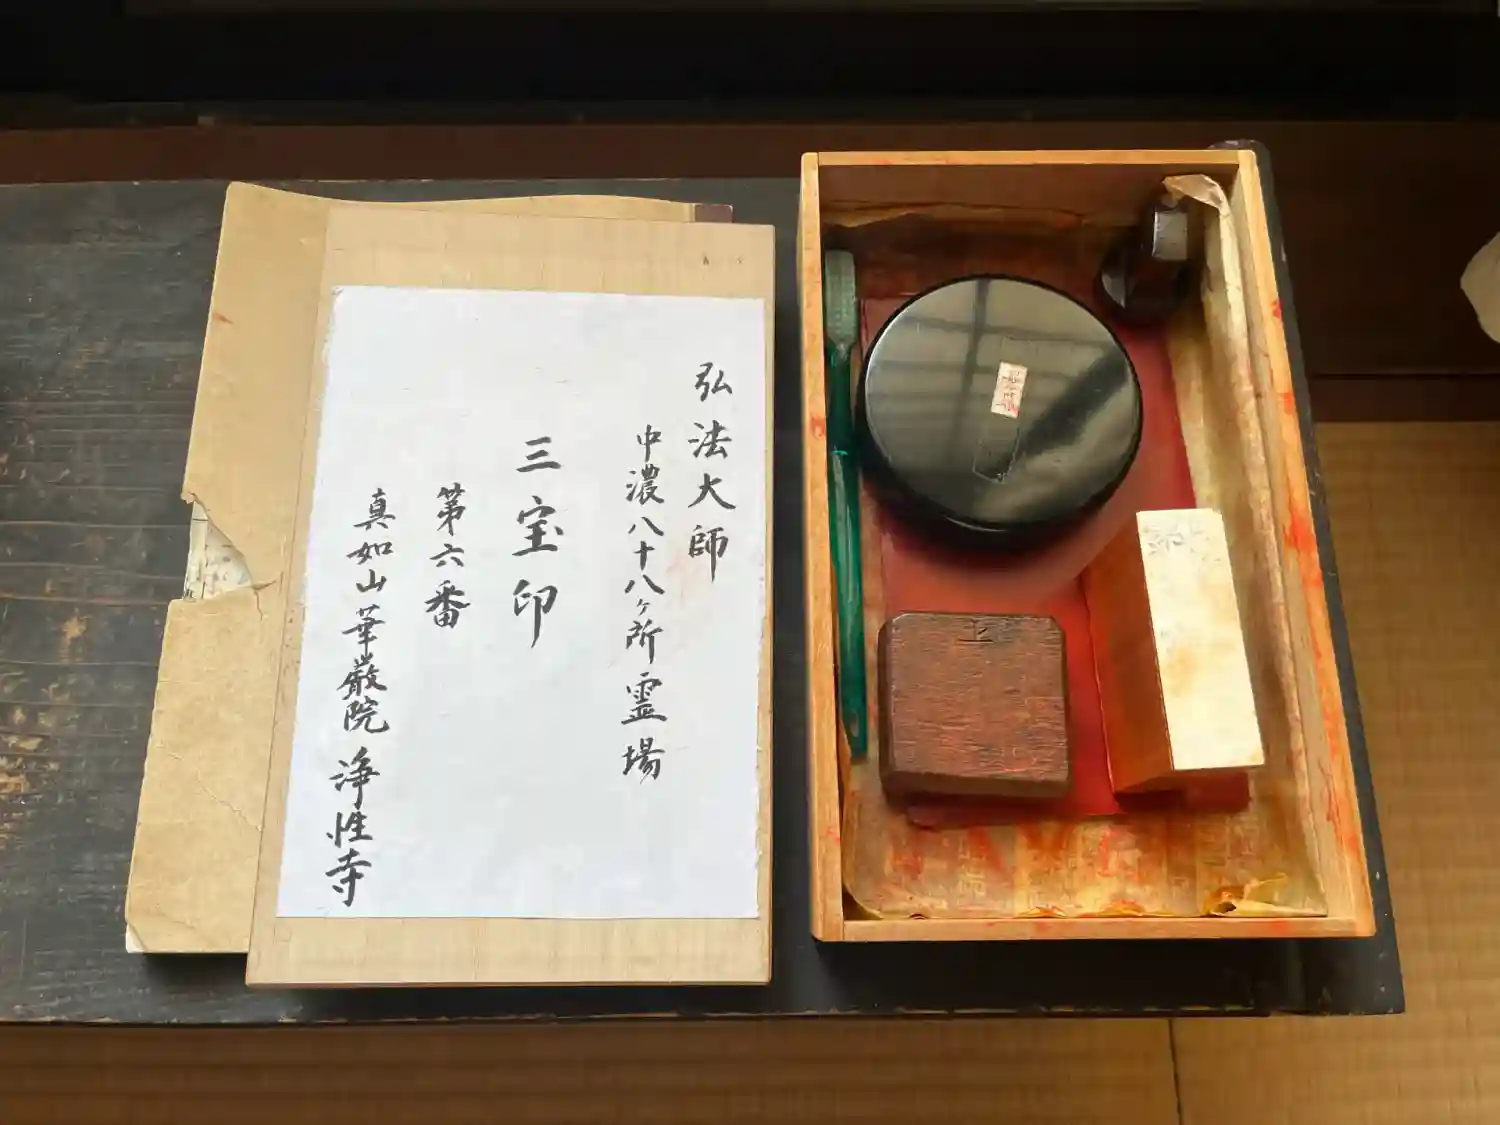 弘法大師
中濃八十八ヶ所霊場
三宝印
第六番
真如山華厳院浄性寺
上